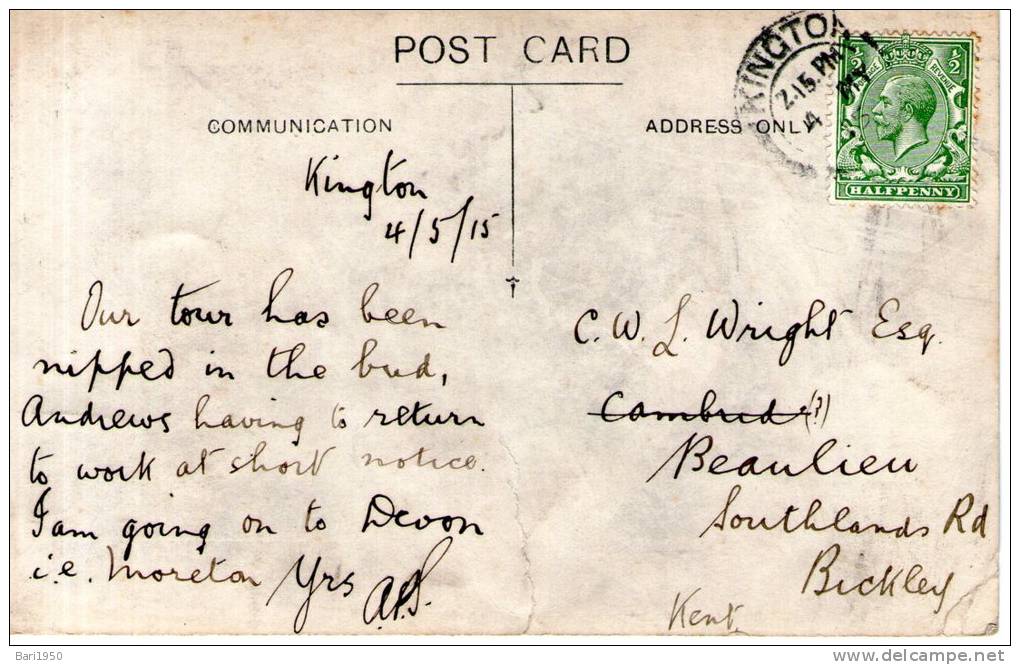 POST CARD
COMMUNICATION
ADDRESS ONLY
KINGTON
2.15 PM
4 MY
1/2 1/2
POSTAGE REVENUE
HALFPENNY
Kington
4/5/15
Our tour has been
nipped in the bud,
Andrews having to return
to work at short notice.
I am going on to Devon
i.e. Moreton Yrs
C. W. L. Wright Esq.
Cambrid (?)
Beaulieu
Southlands Rd
Bickley
Kent
Bari1950
delcampe.net